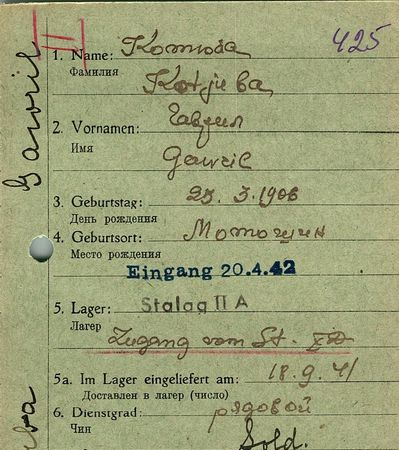 425
II
Gawril
1. Name: Котюва
Фамилия
Kotjuba
2. Vornamen: Гаврил
Имя
Gawril
3. Geburtstag: 25. 3. 1906
День рождения
4. Geburtsort:
Место рождения
Eingang 20.4.42
5. Lager: Stalag II A
Лагерь
Zugang vom St.
5a. Im Lager eingeliefert am: 18. 9. 41
Доставлен в лагерь (число)
6. Dienstgrad: рядовой
Чин
Sold.